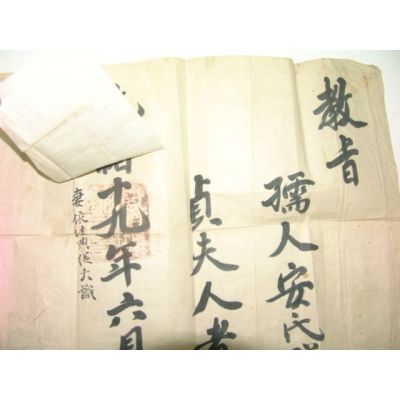 教旨
孺人安氏
貞夫人者
緒十九年六月
妻依法典從夫職